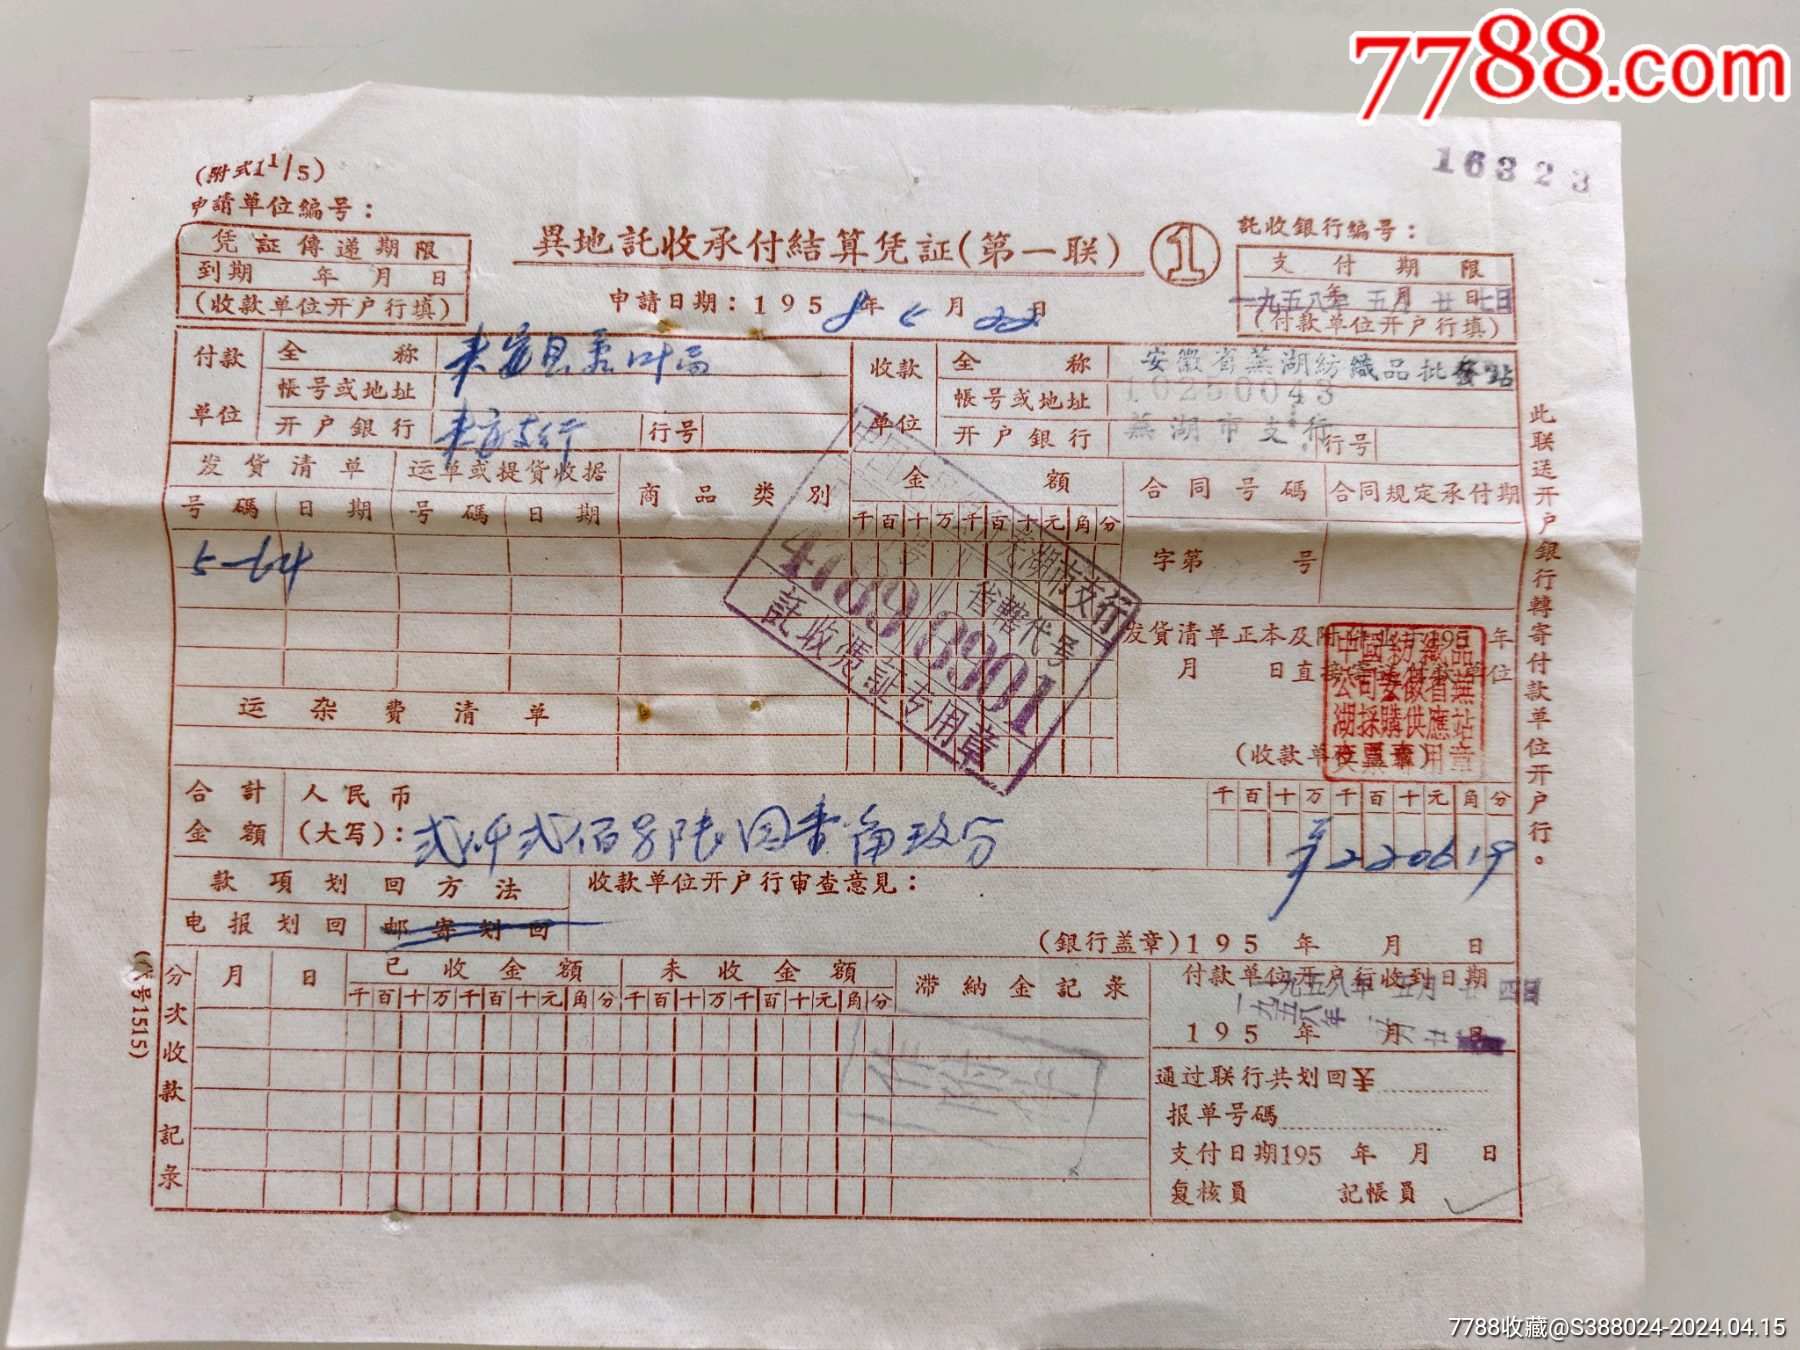 7788.com
16323
(附式1 1/5)
申請单位編号：
託收銀行編号：
凭証傳递期限
到期 年 月 日
(收款单位开户行填)
異地託收承付結算凭証(第一联)
①
申請日期：1958年5月22日
支付期限
一九五八年五月廿七日
(付款单位开户行填)
付款单位
全称
帳号或地址
开户銀行
行号
收款单位
全称 安徽省蕪湖紡織品批發站
帳号或地址 10250043
开户銀行 蕪湖市支行 行号
发貨清单
运单或提貨收据
商品类別
金額
合同号碼
合同規定承付期
号碼 日期 号碼 日期
千百十万千百十元角分
5-64
字第 号
芜湖市支行
省轄代号
4089 8901
託收憑証专用章
发貨清单正本及附件业于195 年
月 日直接寄送付款单位
中國紡織品
公司安徽省蕪
湖採購供應站
(收款单位盖章)
运杂費清单
合計金額
人民币
(大写)：
千百十万千百十元角分
220619
款項划回方法
收款单位开户行审查意見：
电报划回
邮寄划回
(銀行盖章)195 年 月 日
分次收款記录
月 日
已收金額
未收金額
滞納金記录
千百十万千百十元角分
千百十万千百十元角分
付款单位开户行收到日期
一九五八年五月廿四日
195 年 月 日
通过联行共划回￥
报单号碼
支付日期195 年 月 日
复核員 記帳員
此联送开户銀行轉寄付款单位开户行。
(代号1515)
7788收藏@S388024-2024.04.15